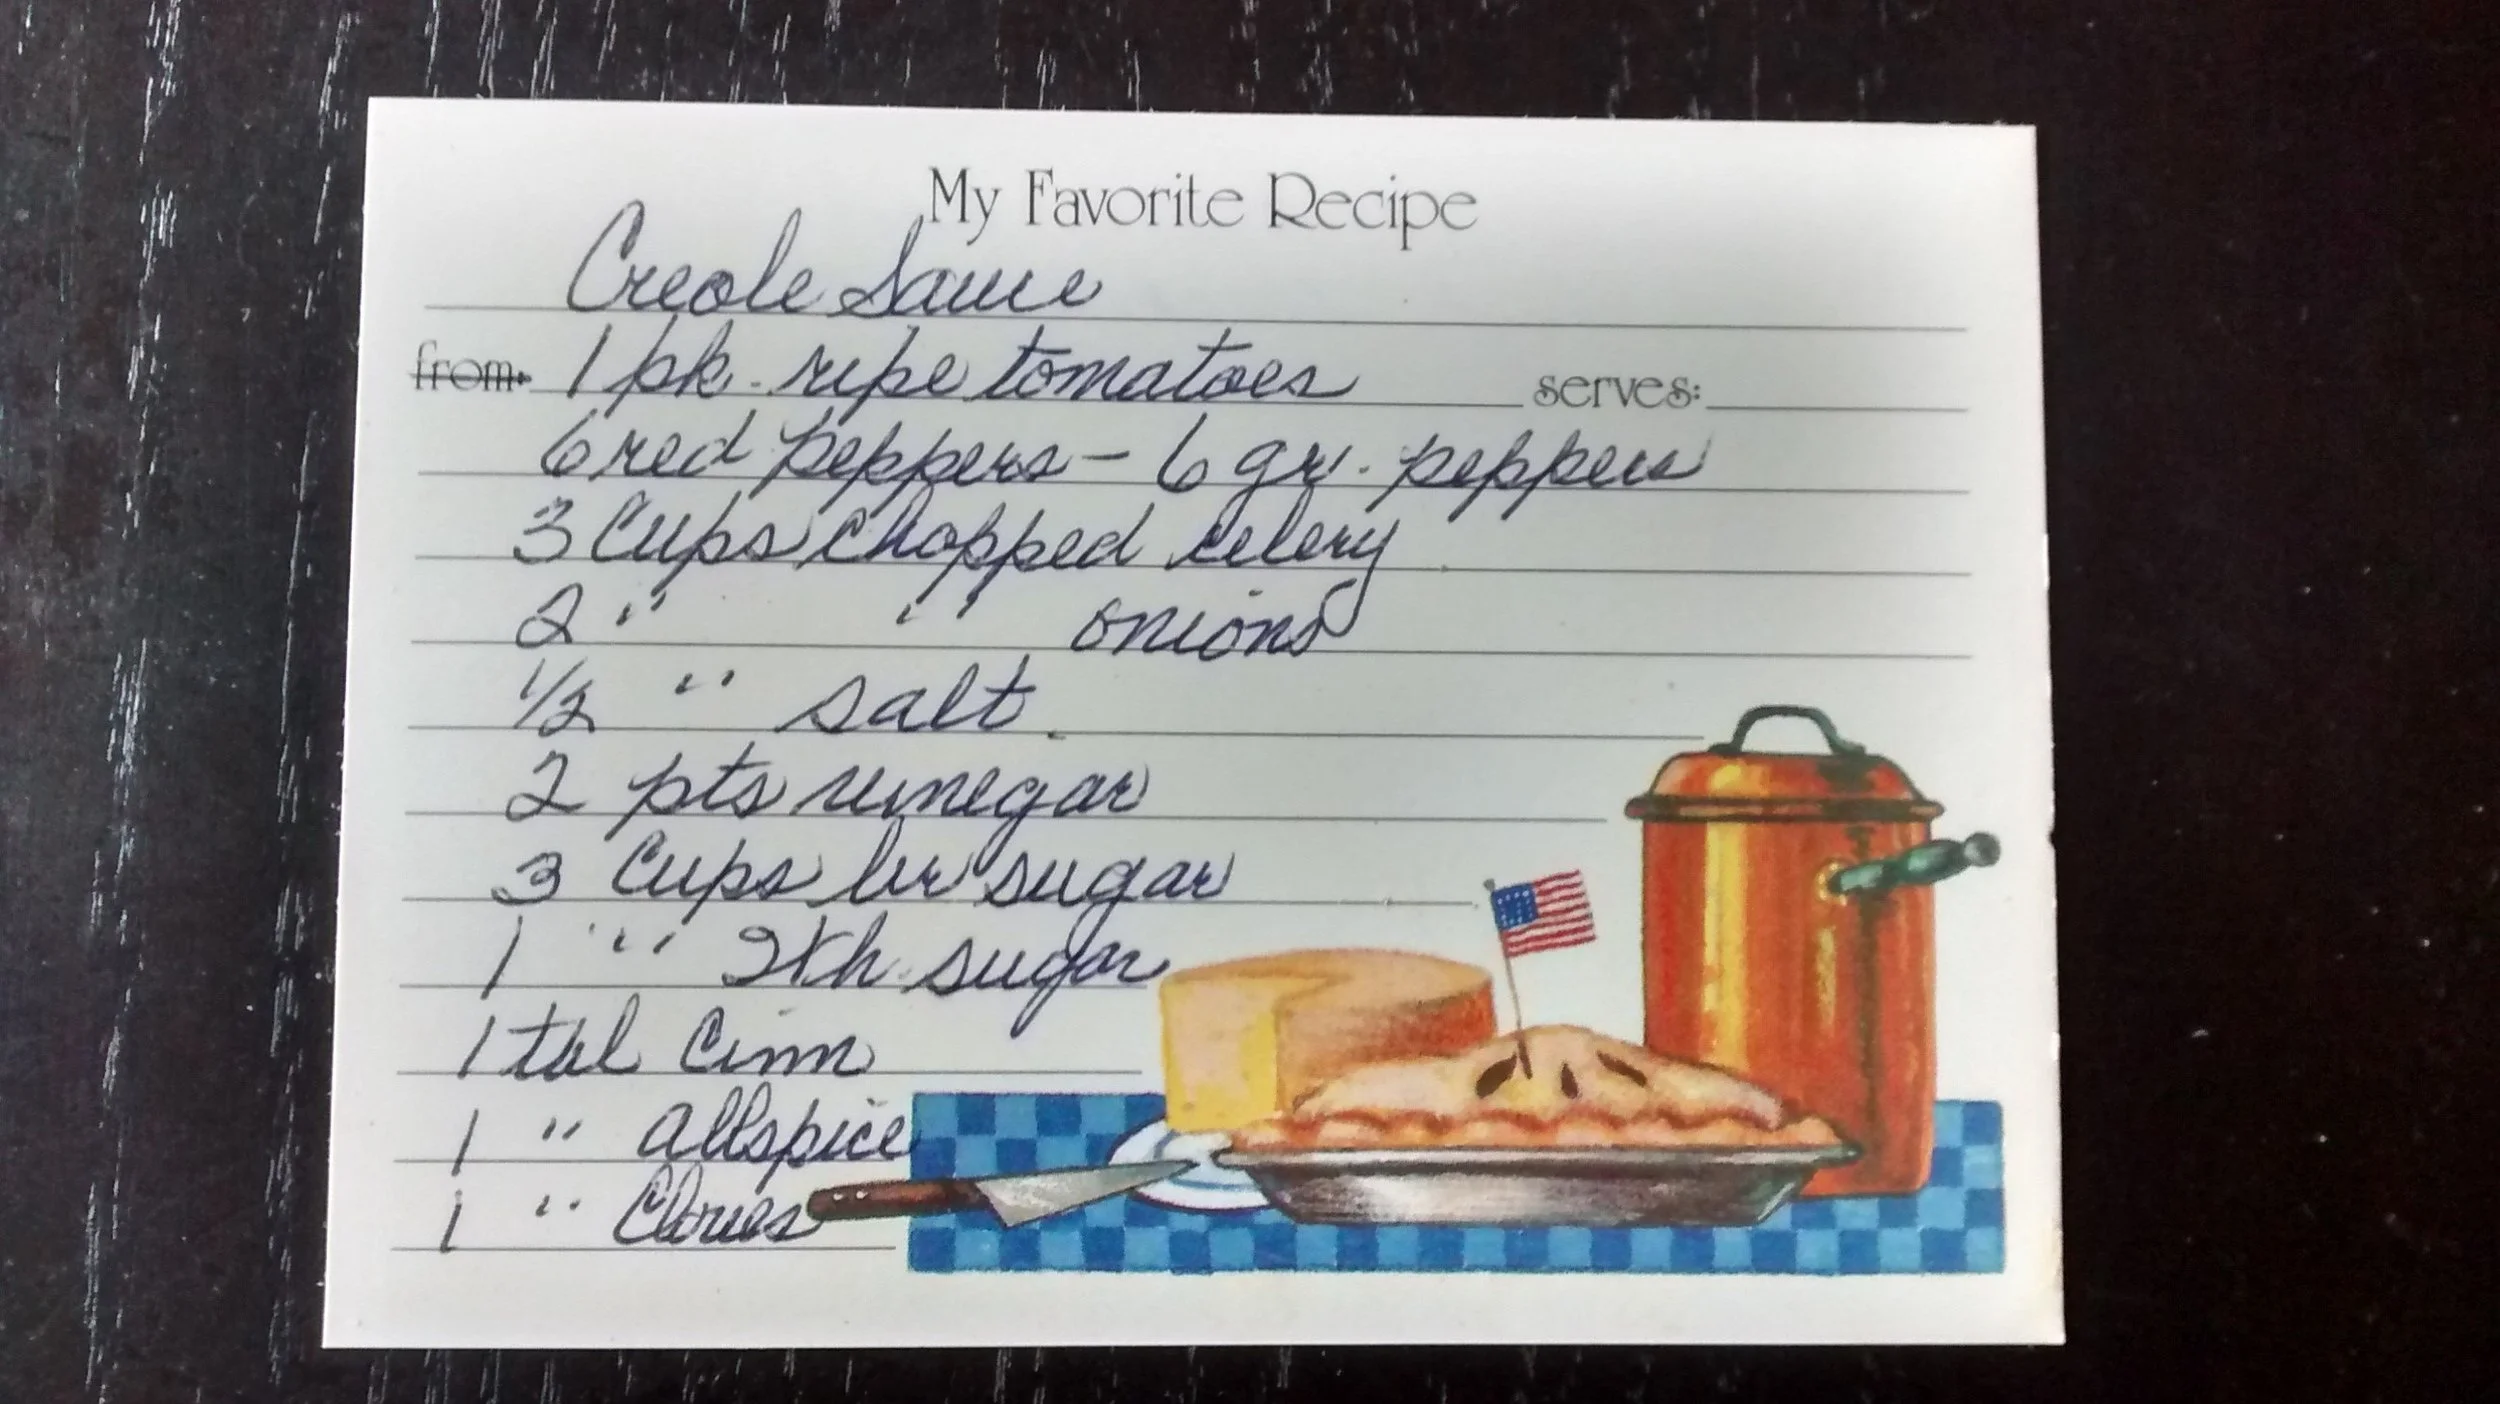 My Favorite Recipe
Creole Sauce
from: 1 pk. ripe tomatoes serves:
6 red peppers - 6 gr. peppers
3 Cups chopped celery
2 " " onions
1/2 " salt
2 pts vinegar
3 Cups br sugar
1 " wh. sugar
1 tbl Cinn
1 " allspice
1 " Cloves